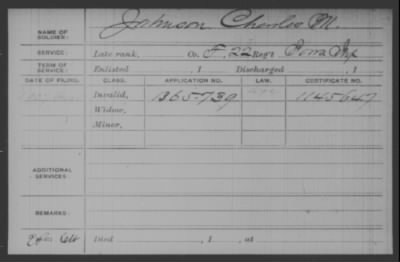 NAME OF SOLDIER: Johnson Charles M.
SERVICE: Late rank, Co. F, 22 Reg't Iowa Inf
TERM OF SERVICE: Enlisted , 1 Discharged , 1
DATE OF FILING. CLASS. APPLICATION NO. LAW. CERTIFICATE NO.
Invalid, 1365739 1145647
Widow,
Minor,
ADDITIONAL SERVICES:
REMARKS:
Died , 1 , at